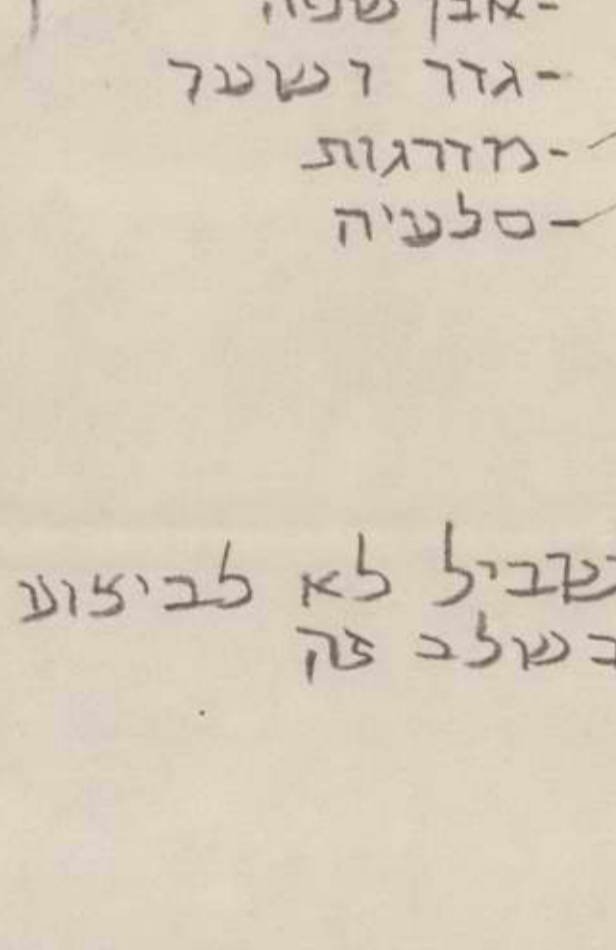 -אבן שפה
-גדר ושער
-מדרגות
-סלעיה
שביל לא לביצוע
בשלב זה